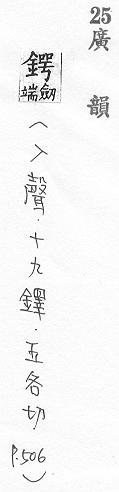 25廣韻
鍔
劒端
(入聲.十九鐸.五各切
P.506)